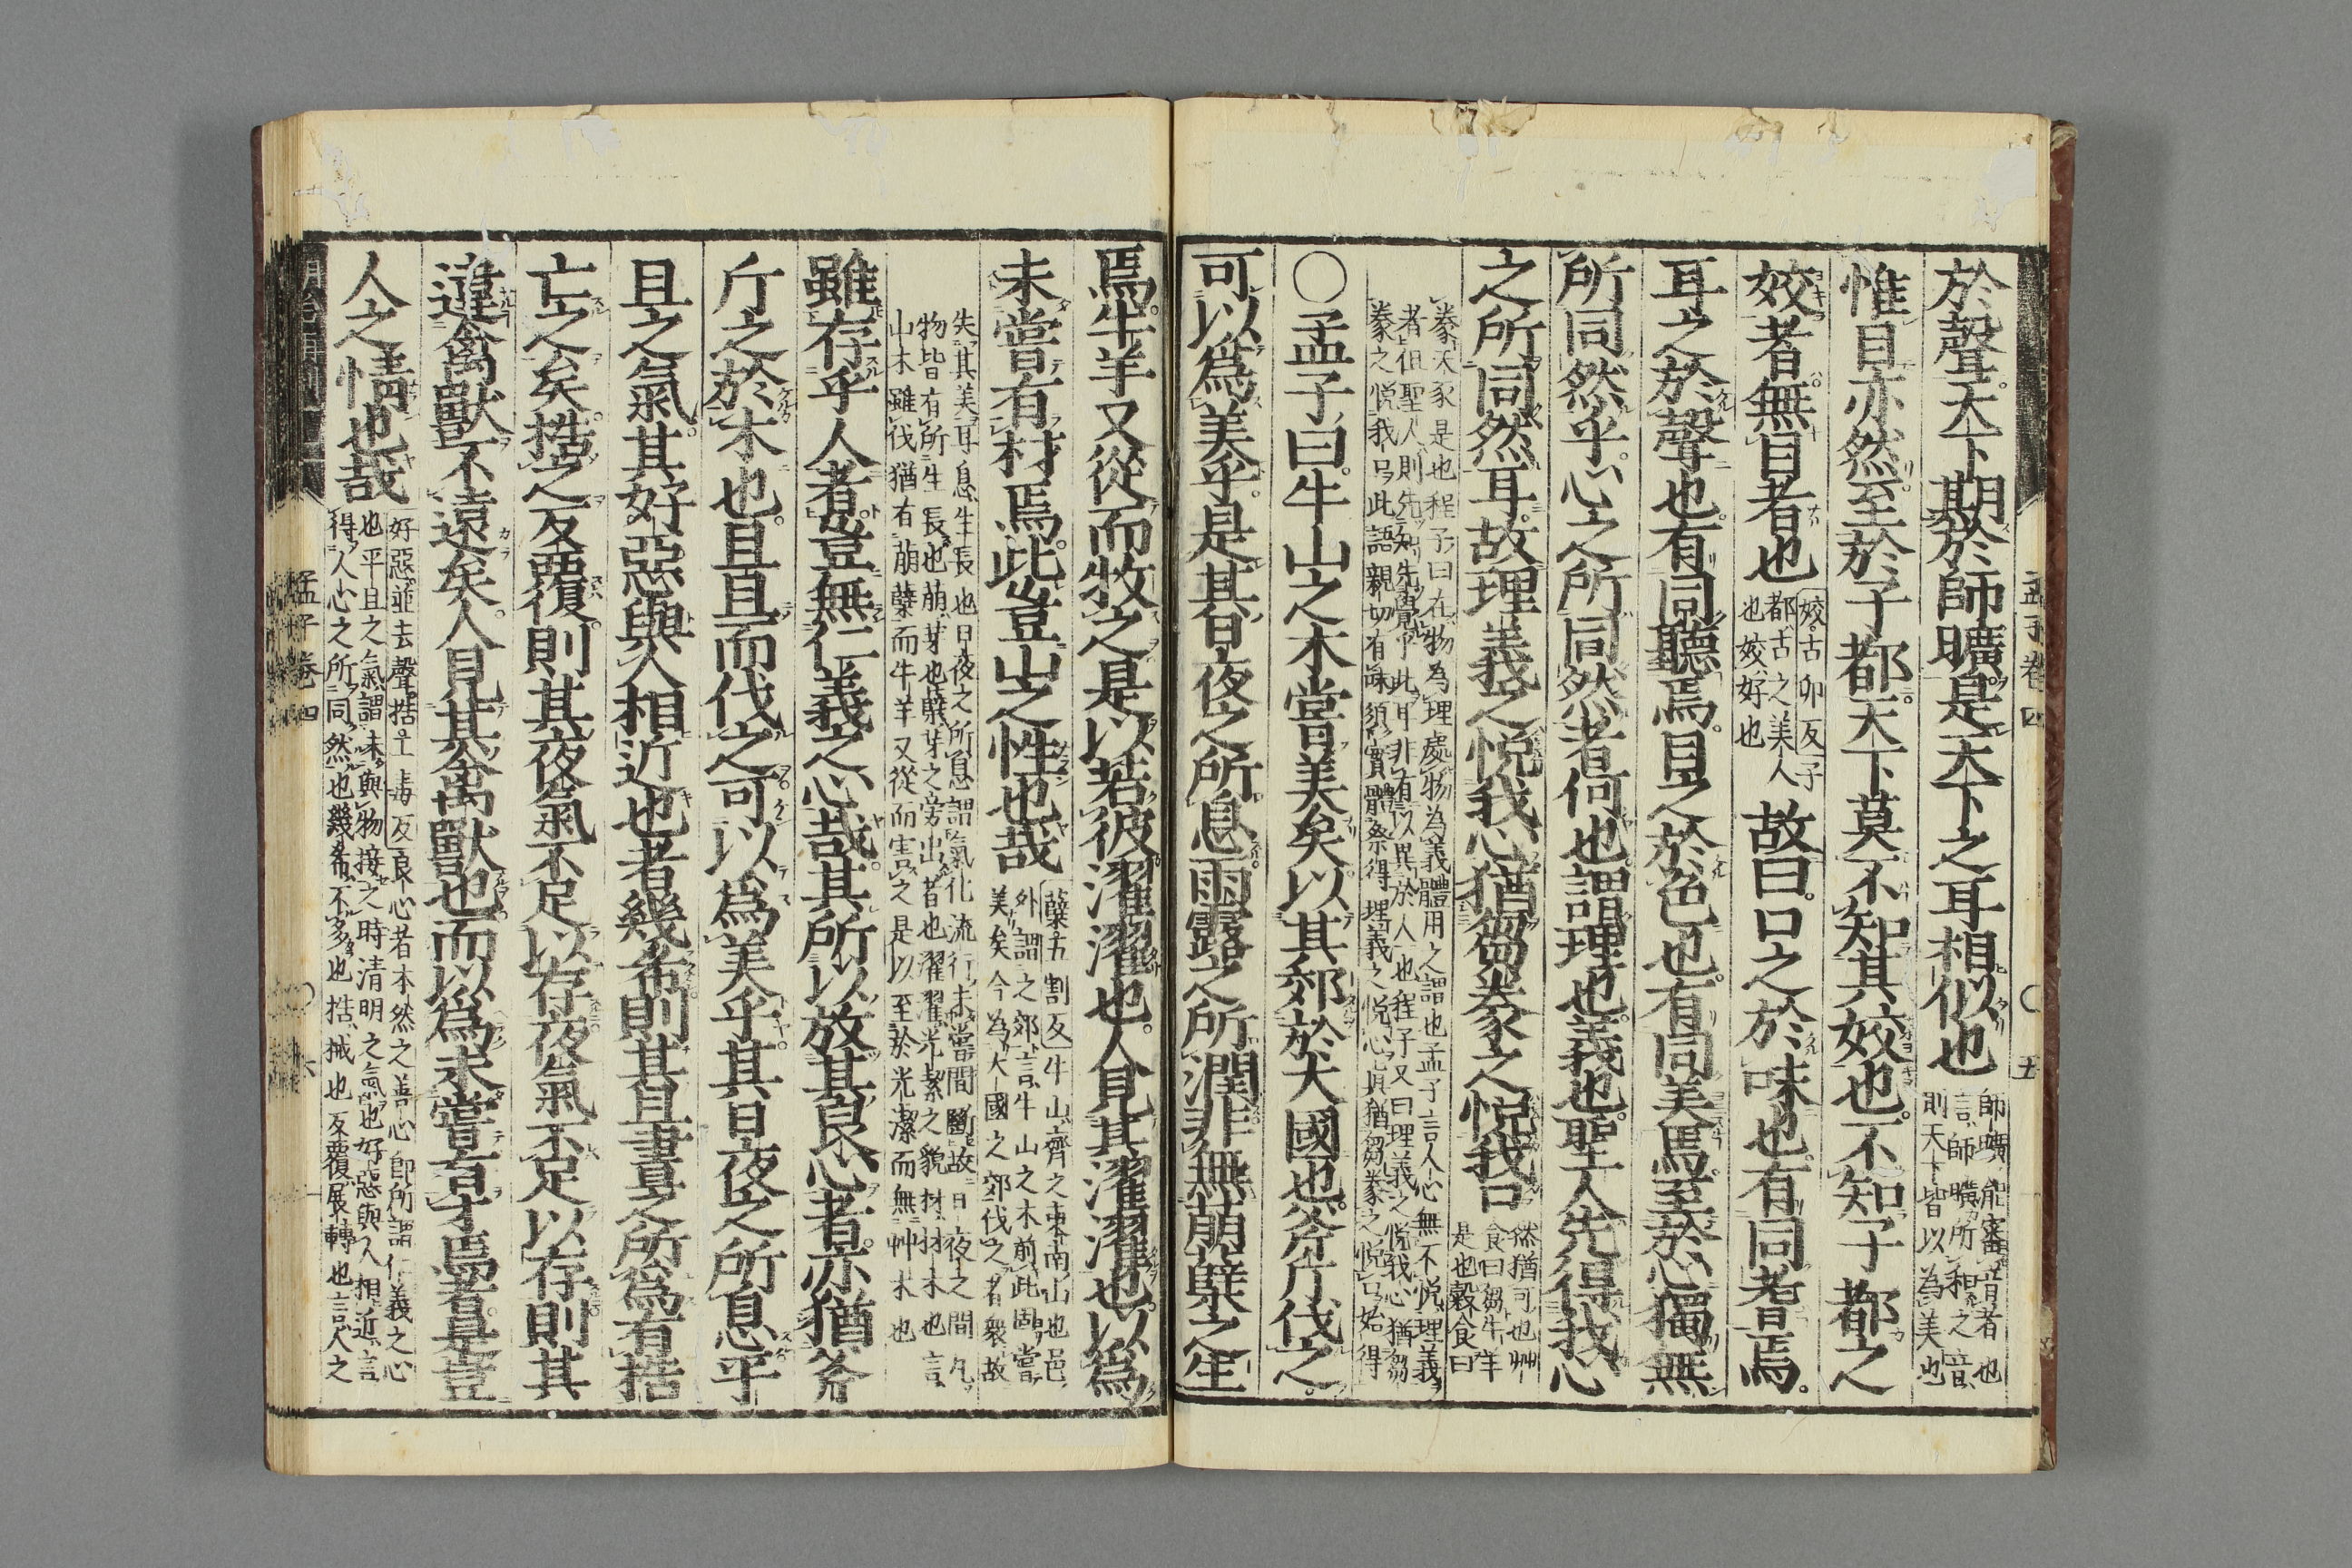 孟子卷四
〇五
於聲天下期於師曠是天下之耳相似也
師曠能審音者也
言師曠所和之音
則天下皆以為美也
惟目亦然至於子都天下莫不知其姣也不知子都之
姣者無目者也
姣古卯反子
都古之美人
也姣好也
故曰口之於味也有同耆焉
耳之於聲也有同聽焉目之於色也有同美焉至於心獨無
所同然乎心之所同然者何也謂理也義也聖人先得我心
之所同然耳故理義之悅我心猶芻豢之悅我口
然猶可也艸
食曰芻牛羊
是也穀食曰
豢犬豕是也程子曰在物為理處物為義體用之謂也孟子言人心無不悅理義
者但聖人則先知先覺乎此耳非有以異於人也程子又曰理義之悅我心猶芻
豢之悅我口此語親切有味須實體察得理義之悅心眞猶芻豢之悅口始得
〇孟子曰牛山之木嘗美矣以其郊於大國也斧斤伐之
可以爲美乎是其日夜之所息雨露之所潤非無萌櫱之生
焉牛羊又從而牧之是以若彼濯濯也人見其濯濯也以爲
未嘗有材焉此豈山之性也哉
櫱五割反牛山齊之東南山也邑
外謂之郊言牛山之木前此固嘗
美矣今為大國之郊伐之者衆故
失其美耳息生長也日夜之所息謂氣化流行未嘗間斷故日夜之間凡
物皆有所生長也萌芽也櫱芽之旁出者也濯濯光潔之貌材材木也言
山木雖伐猶有萌櫱而牛羊又從而害之是以至於光潔而無艸木也
雖存乎人者豈無仁義之心哉其所以放其良心者亦猶斧
斤之於木也旦旦而伐之可以爲美乎其日夜之所息平
旦之氣其好惡與人相近也者幾希則其旦晝之所爲有梏
亡之矣梏之反覆則其夜氣不足以存夜氣不足以存則其
違禽獸不遠矣人見其禽獸也而以爲未嘗有才焉者是豈
人之情也哉
好惡並去聲梏工毒反良心者本然之善心即所謂仁義之心
也平旦之氣謂未與物接之時清明之氣也好惡與人相近言
得人心之所同然也幾希不多也梏械也反覆展轉也言人之
孟子卷四
〇六